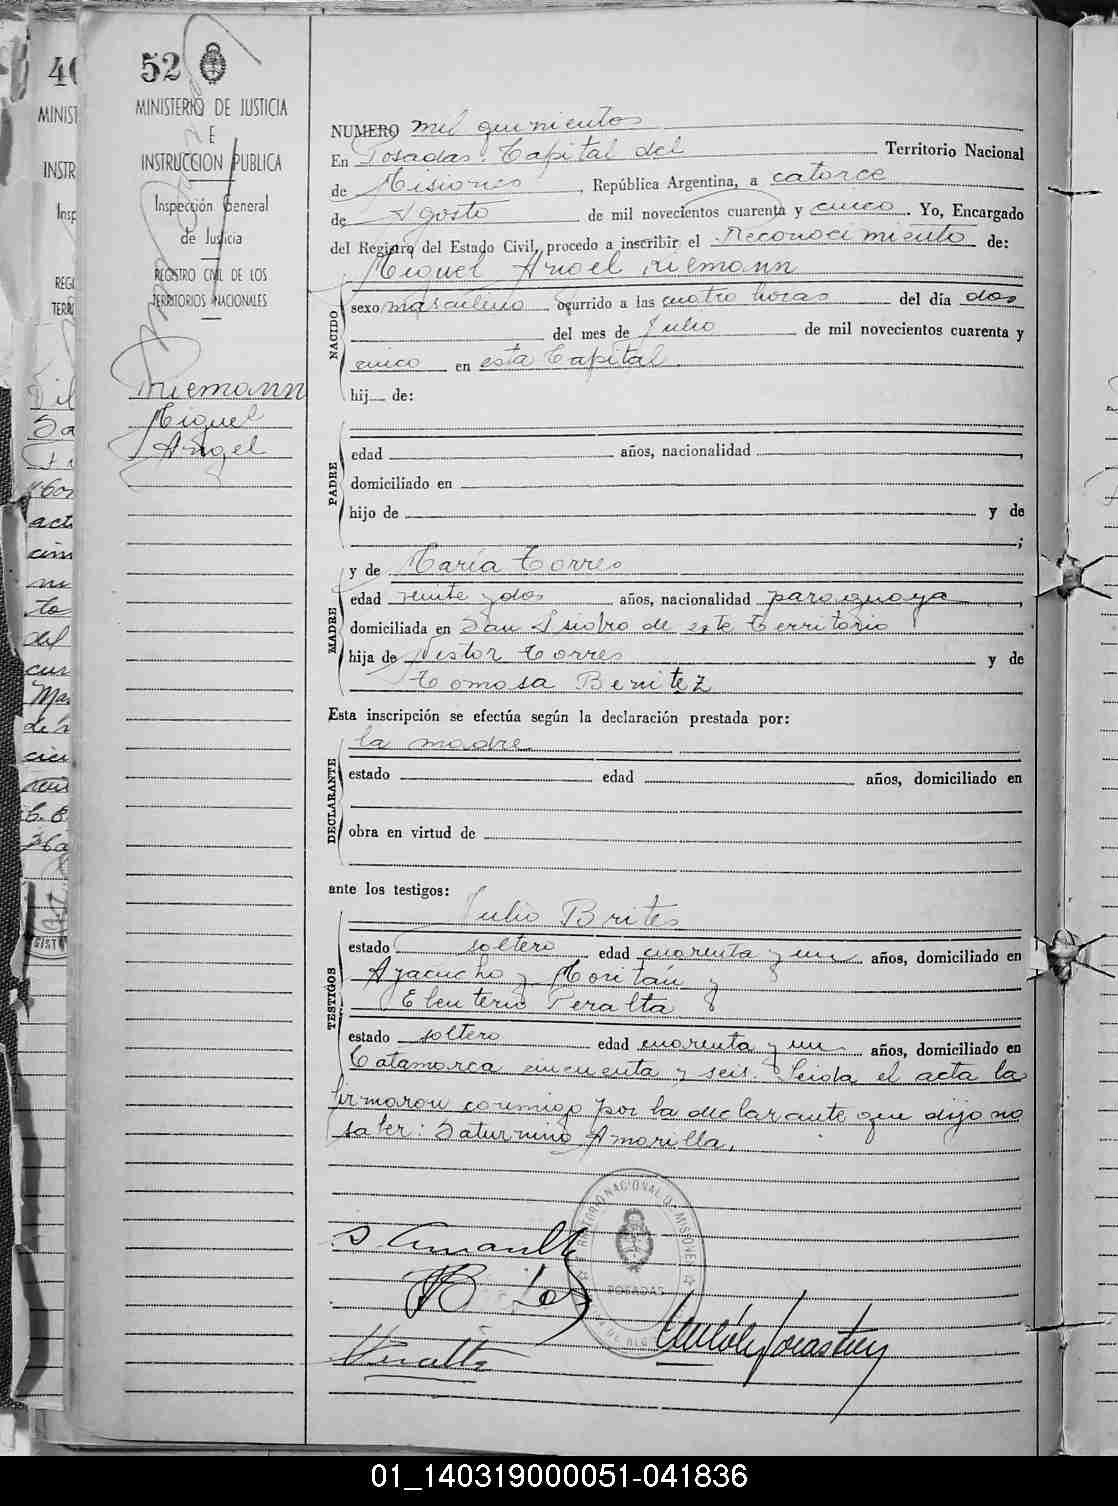 52
MINISTERIO DE JUSTICIA
E
INSTRUCCION PUBLICA
Inspección General
de Justicia
REGISTRO CIVIL DE LOS
TERRITORIOS NACIONALES
Riemann
Miguel
Angel
NUMERO mil quinientos
En Posadas, Capital del Territorio Nacional
de Misiones, República Argentina, a catorce
de Agosto de mil novecientos cuarenta y cinco. Yo, Encargado
del Registro del Estado Civil, procedo a inscribir el Reconocimiento de:
Miguel Angel Riemann
NACIDO
sexo masculino ocurrido a las cuatro horas del día dos
del mes de Julio de mil novecientos cuarenta y
cinco en esta Capital
hij de:
PADRE
edad años, nacionalidad
domiciliado en
hijo de y de
;
MADRE
y de María Torres
edad veinte y dos años, nacionalidad paraguaya,
domiciliada en San Isidro de este Territorio
hija de Nestor Torres y de
Tomasa Benitez
Esta inscripción se efectúa según la declaración prestada por:
la madre
DECLARANTE
estado edad años, domiciliado en
obra en virtud de
ante los testigos:
TESTIGOS
Julio Brites
estado soltero, edad cuarenta y un años, domiciliado en
Ayacucho y Moritán y
Eleuterio Peralta
estado soltero edad cuarenta y un años, domiciliado en
Catamarca cincuenta y seis. Leida el acta la
firmaron conmigo por la declarante que dijo no
saber: Saturnino Amarilla.
TERRITORIO NACIONAL DE MISIONES
POSADAS
01_140319000051-041836